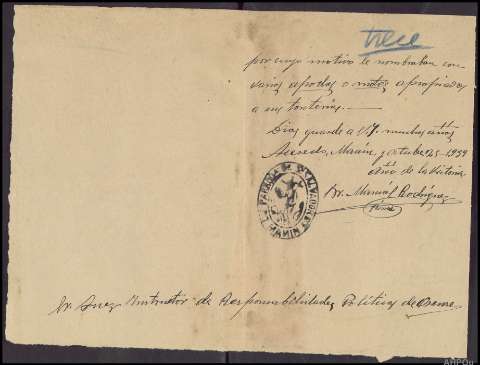 trece
por cuyo motivo le nombraban con
varios apodos o motes apropiados
a sus tonterias.—
Dios guarde a V. muchos años
Acevedo, Marín, octubre 25-1939
Año de la Victoria
Manuel Rodríguez
Sr Juez Instructor de Responsabilidades Políticas de Orense
AHPOu